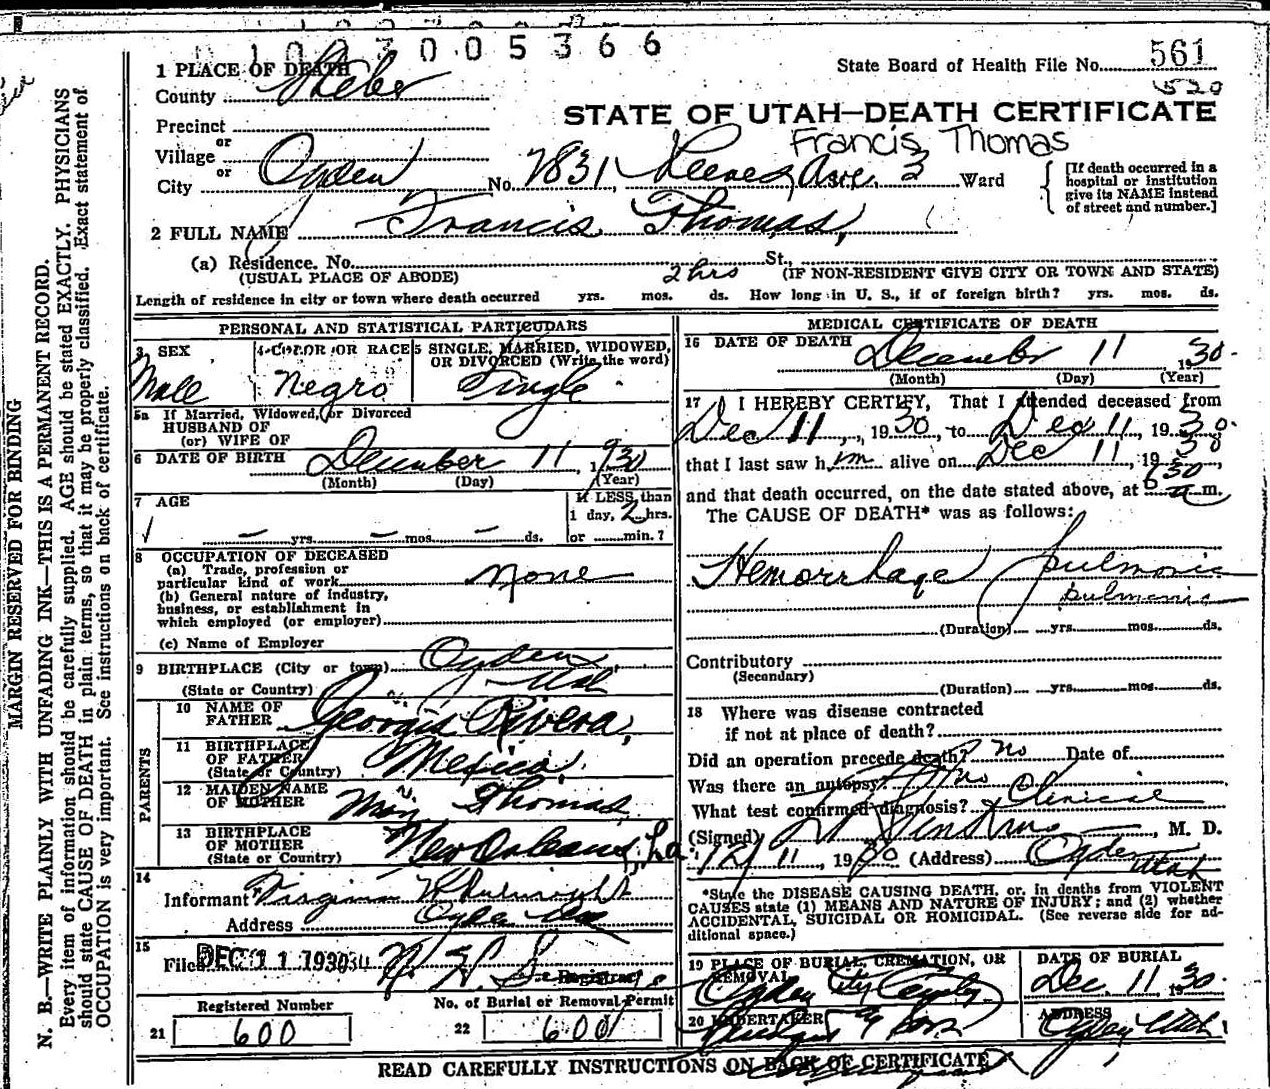 1 0 0 3 0 0 5 3 6 6
1 PLACE OF DEATH
State Board of Health File No. 561
County Weber
520
STATE OF UTAH—DEATH CERTIFICATE
Precinct
or
Francis Thomas
Village
or
City Ogden No. 2831 Ave. 3 Ward
[If death occurred in a hospital or institution give its NAME instead of street and number.]
2 FULL NAME Francis Thomas,
(a) Residence. No. St.,
(USUAL PLACE OF ABODE) 2 hrs (IF NON-RESIDENT GIVE CITY OR TOWN AND STATE)
Length of residence in city or town where death occurred yrs. mos. ds. How long in U. S., if of foreign birth? yrs. mos. ds.
PERSONAL AND STATISTICAL PARTICULARS
3 SEX
Male
4 COLOR OR RACE
Negro
5 SINGLE, MARRIED, WIDOWED, OR DIVORCED (Write the word)
Single
5a If Married, Widowed, or Divorced
HUSBAND OF
(or) WIFE OF
6 DATE OF BIRTH December 11, 1930
(Month) (Day) (Year)
7 AGE
— yrs — mos — ds.
If LESS than
1 day, 2 hrs.
or min.?
8 OCCUPATION OF DECEASED
(a) Trade, profession or
particular kind of work None
(b) General nature of industry,
business, or establishment in
which employed (or employer)
(c) Name of Employer
9 BIRTHPLACE (City or town) Ogden
(State or Country) Utah
PARENTS
10 NAME OF FATHER Rivera,
11 BIRTHPLACE OF FATHER (State or Country) Mexico
12 MAIDEN NAME OF MOTHER Thomas
13 BIRTHPLACE OF MOTHER (State or Country) New Orleans, La
14
Informant Virginia
Address Ogden Utah
15
Filed DEC 11 1930
Registrar
Registered Number
21 600
No. of Burial or Removal Permit
22 600
MEDICAL CERTIFICATE OF DEATH
16 DATE OF DEATH December 11 1930.
(Month) (Day) (Year)
17 I HEREBY CERTIFY, That I attended deceased from
Dec 11, 1930, to Dec 11, 1930.
that I last saw him alive on Dec 11, 1930,
and that death occurred, on the date stated above, at 6 30 a m.
The CAUSE OF DEATH* was as follows:
Hemorrhage pulmonic
pulmonic
(Duration) yrs. mos. ds.
Contributory
(Secondary)
(Duration) yrs. mos. ds.
18 Where was disease contracted
if not at place of death?
Did an operation precede death? no Date of
Was there an autopsy? no
What test confirmed diagnosis? Clinical
(Signed) , M. D.
12/11, 1930 (Address) Ogden Utah
*State the DISEASE CAUSING DEATH, or, in deaths from VIOLENT
CAUSES state (1) MEANS AND NATURE OF INJURY; and (2) whether
ACCIDENTAL, SUICIDAL OR HOMICIDAL. (See reverse side for ad-
ditional space.)
19 PLACE OF BURIAL, CREMATION, OR REMOVAL
Ogden City
DATE OF BURIAL
Dec 11 1930.
20 UNDERTAKER
& Sons
ADDRESS
Ogden Utah
READ CAREFULLY INSTRUCTIONS ON BACK OF CERTIFICATE
MARGIN RESERVED FOR BINDING
N. B.—WRITE PLAINLY WITH UNFADING INK—THIS IS A PERMANENT RECORD.
Every item of information should be carefully supplied. AGE should be stated EXACTLY. PHYSICIANS
should state CAUSE OF DEATH in plain terms, so that it may be properly classified. Exact statement of
OCCUPATION is very important. See instructions on back of certificate.